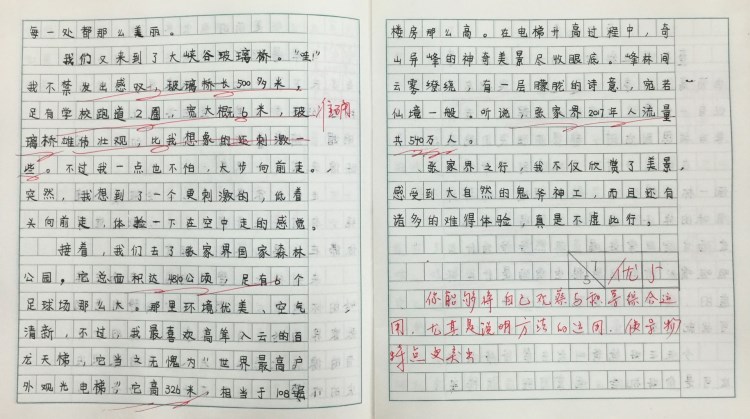 每一处都那么美丽。
我们又来到了大峡谷玻璃桥。“哇!”
我不禁发出感叹，玻璃桥长500多米，
足有学校跑道2圈，宽大概6米，玻
璃桥雄伟壮观，比我想象的还刺激一
些。不过我一点也不怕，大步向前走。
突然，我想到了一个更刺激的，低着
头向前走，体验一下在空中走的感觉。
接着，我们去了张家界国家森林
公园，它总面积达4810公顷，足有6个
足球场那么大。那里环境优美、空气
清新，不过，我最喜欢高耸入云的百
龙天梯，它当之无愧为“世界最高户
外观光电梯”，它高326米，相当于108层
楼房那么高。在电梯升高过程中，奇
山异峰的神奇美景尽收眼底。峰林间
云雾缭绕，有一层朦胧的诗意，宛若
仙境一般。听说，张家界2017年人流量
共540万人。
张家界之行，我不仅欣赏了美景，
感受到大自然的鬼斧神工，而且还有
诸多的难得体验，真是不虚此行。
优
你能够将自己
用，尤其是说明方法的运用，使景物
特点更突出